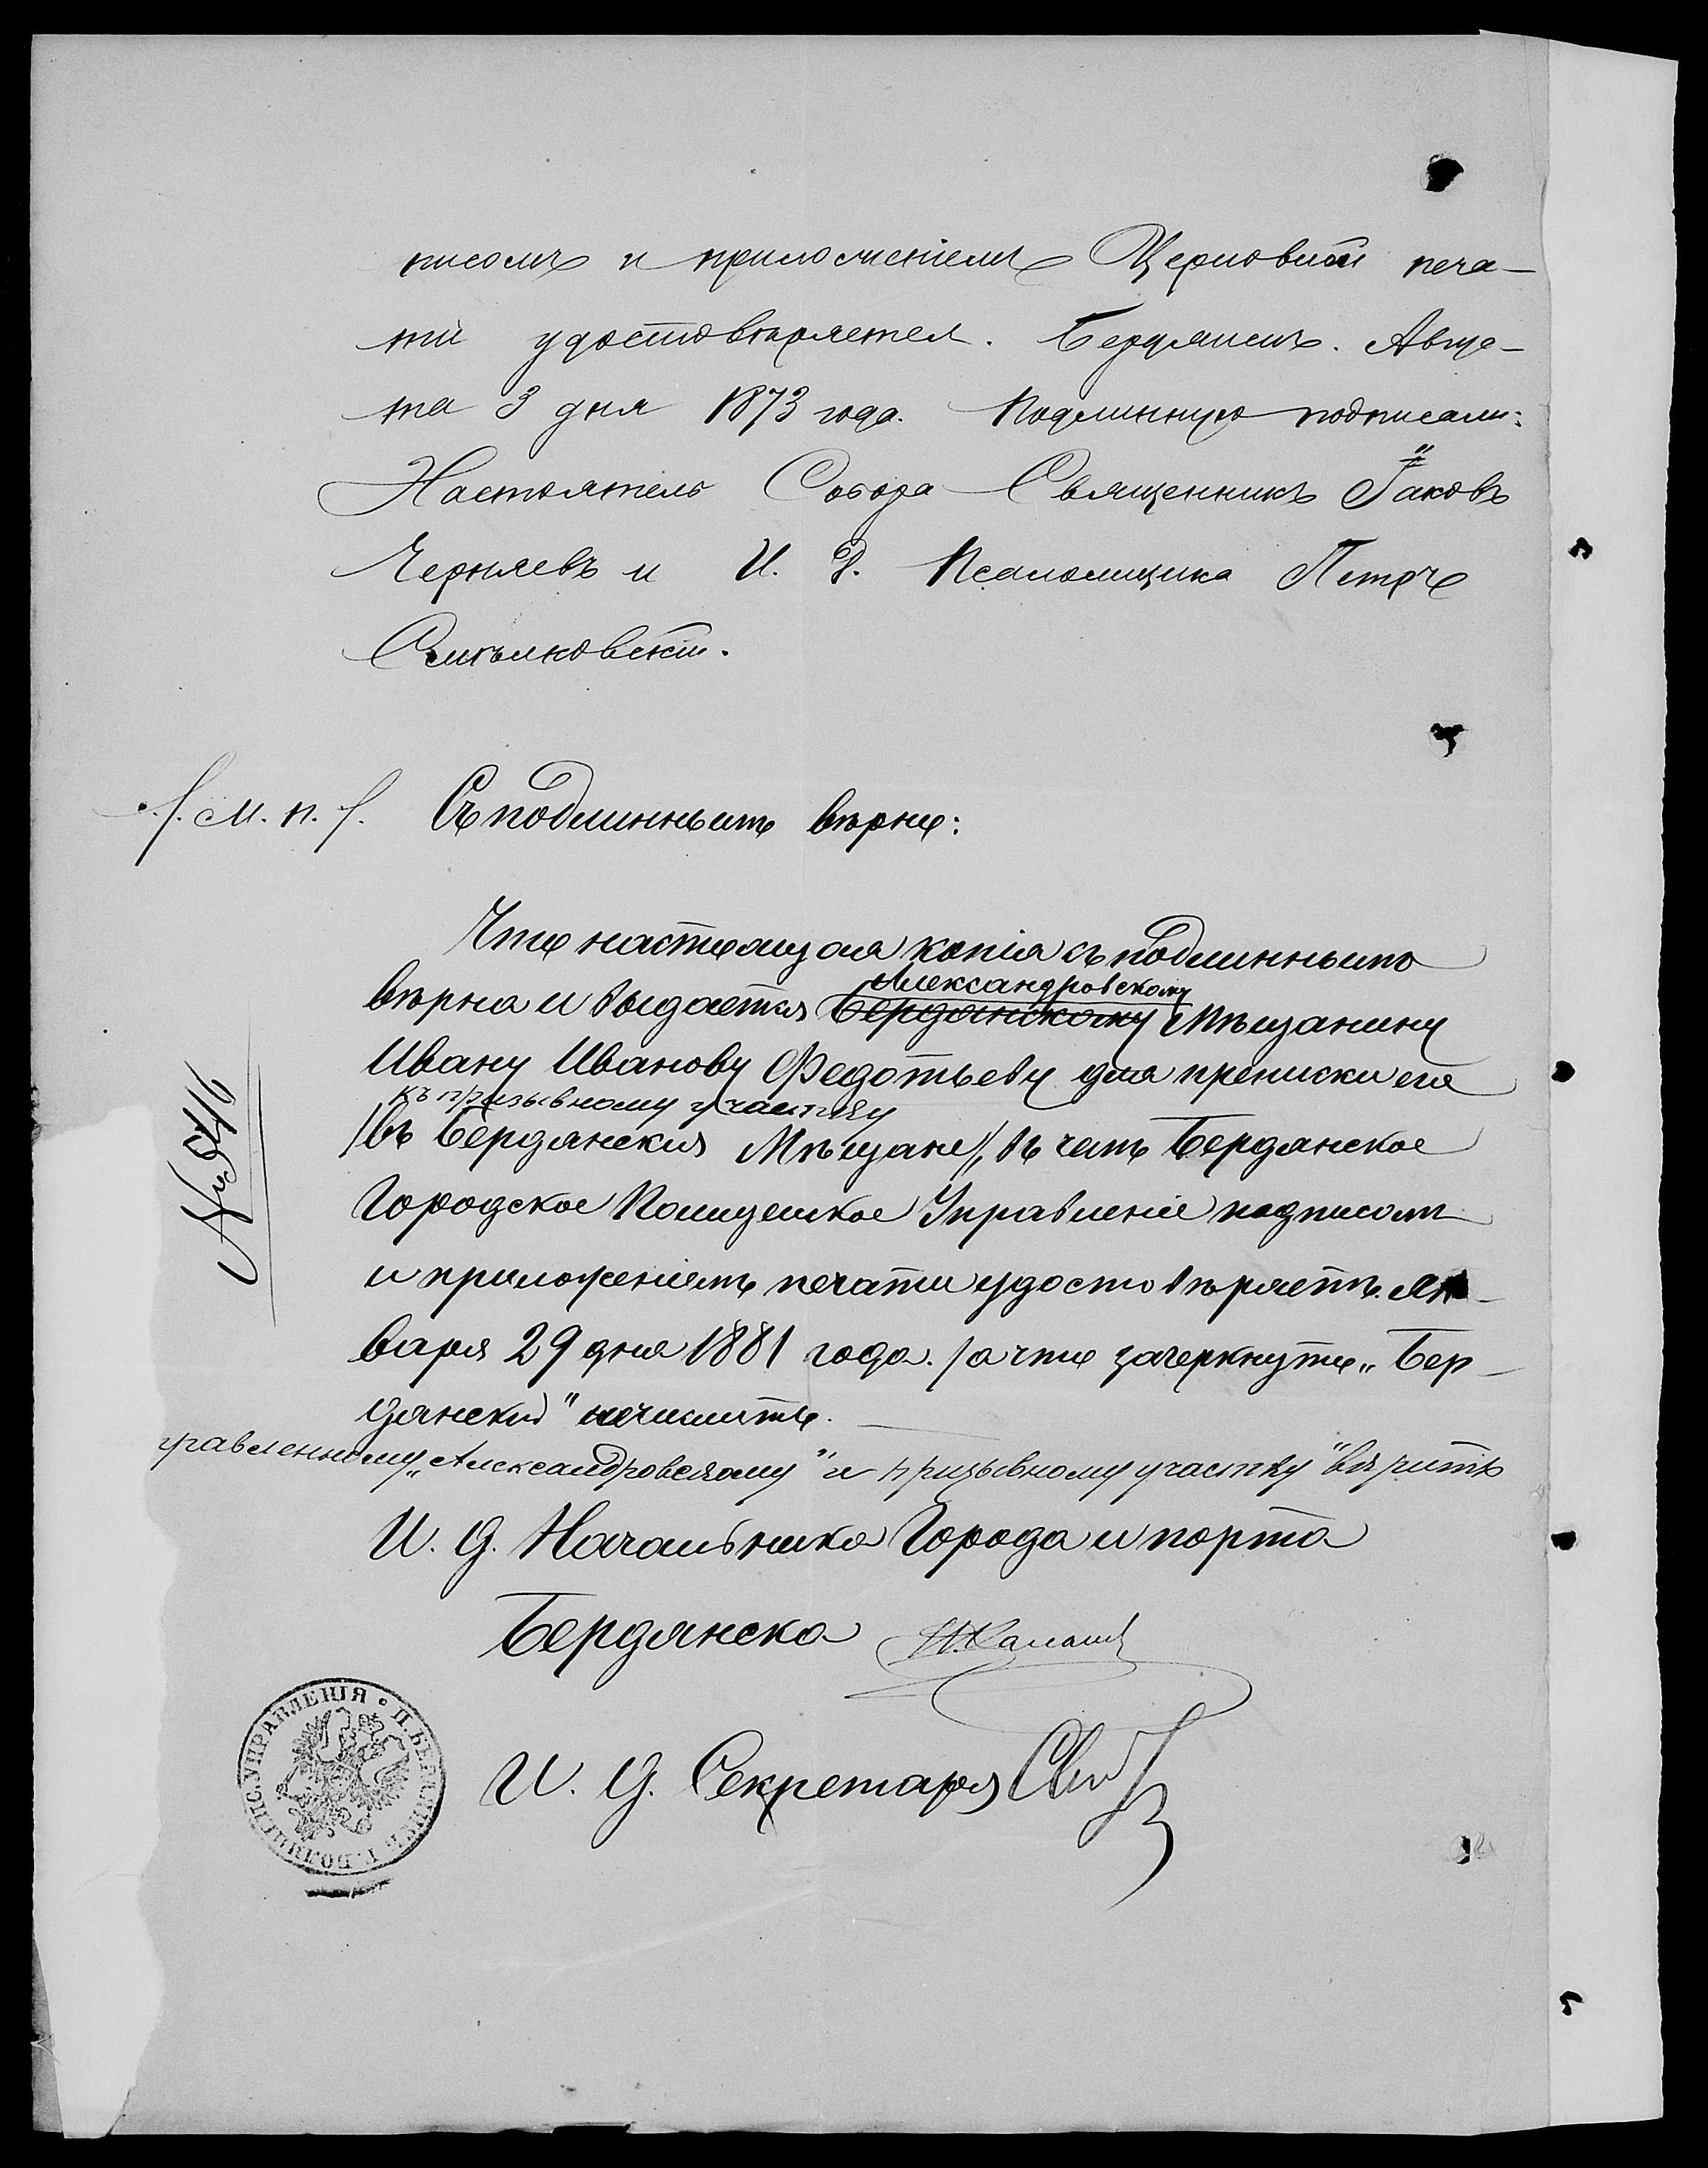 писомъ и приложеніемъ Церковной печа-
ти удостовѣряется. Бердянскъ. Авгус-
та 3 дня 1873 года. Подлинную подписали:
Настоятель Собора Священникъ Іаковъ
Черняевъ и И. Д. Псаломщика Петръ
М. П. Съ подлиннымъ вѣрно:
Что настоящая копія съ подлиннымъ
Александровскому
вѣрна и выдается Бердянскому Мѣщанину
Ивану Иванову Федотьеву для приписки его
къ призывному участку
/въ Бердянскія Мѣщане/, въ чемъ Бердянское
Городское Полицейское Управленіе подписомъ
и приложеніемъ печати удостовѣряетъ. Ян-
варя 29 дня 1881 года. /а что зачеркнуто „Бер-
дянскій" не числить.
правленному „Александровскому" и призывному участку" вѣрить
И. Д. Начальника Города и порта
Бердянска
И. Д. Секретаря
№ 546
П. БЕРДЯНСК. Г. ПОЛИЦЕЙС. УПРАВЛЕНІЯ